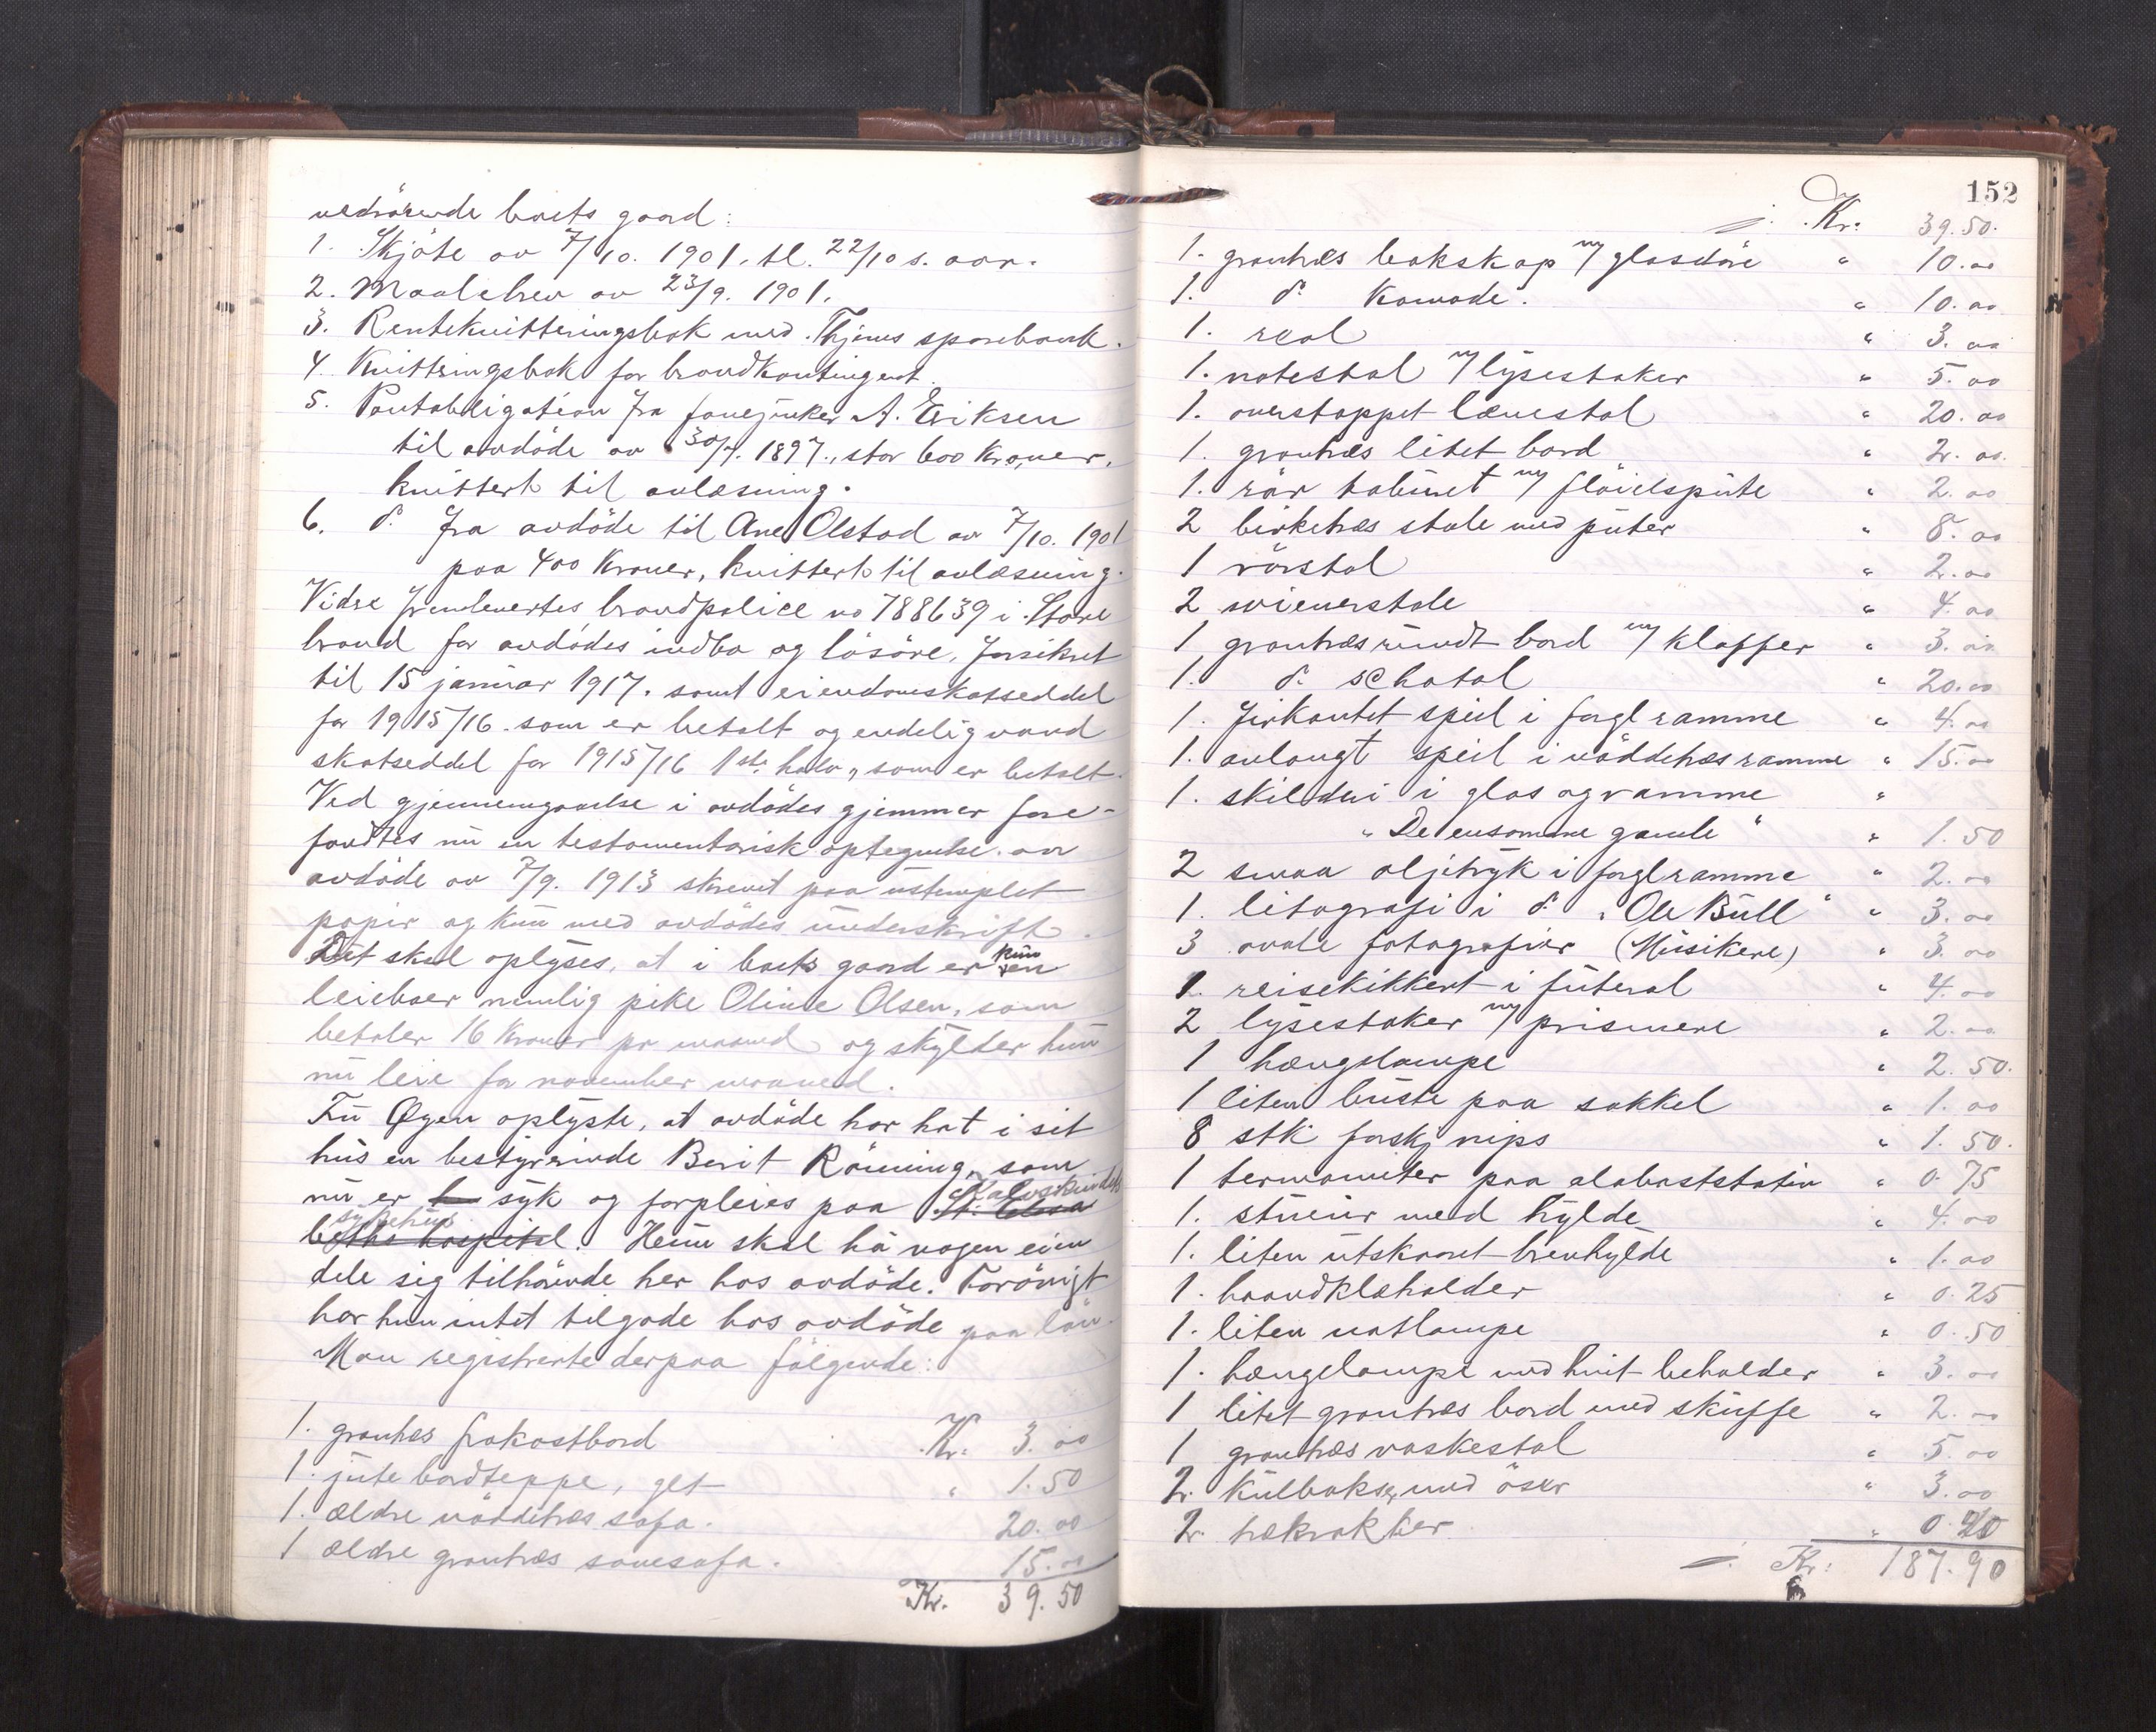 vedrörende boets gaard:
1. Skjöte av 7/10. 1901. tl. 22/10 s. aar.
2. Maalebrev av 23/9. 1901.
3. Rentekvitteringsbok med Thjems sparebank.
4. Kvittringsbok for brandkontingent.
5. Pantobligation fra fanejunker A. Eriksen
til avdöde av 30/7. 1897., stor 600 Kroner,
kvittert til avlæsning.
6. d. fra avdöde til Ane Olstad av 7/10. 1901
paa 400 Kroner, kvittert til avlæsning.
Vidre fremlevertes brandpolice no 788639 i Store
brand for avdödes indbo og lösöre, forsikret
til 15 januar 1917. samt eiendomskatseddel
for 1915/16. som er betalt og endelig vand
skatseddel for 1915/16 1ste halv., som er betalt.
Ved gjennemgaaelse i avdödes gjemmer fore-
fandtes nu en testamentarisk optegnelse av
avdöde av 7/9. 1913 skrevet paa ustemplet
papir og kun med avdödes underskrift.
Det skal oplyses, at i boets gaard er kun en
leieboer nemlig pike Oline Olsen, som
betaler 16 Kroner pr maaned og skylder hun
nu leie for november maaned.
Fru Øyen oplyste, at avdöde har hat i sit
hus en bestyrerinde Berit Rönning, som
nu er syk og forpleies paa Kalvskindets
sykehus. Hun skal ha nogen eien
dele sig tilhörende her hos avdöde. Forövrigt
har hun intet tilgode hos avdöde paa lön.
Man registrerte derpaa fölgende:
1. grantræs frokostbord Kr. 3.00
1. jute bordteppe, gct " 1.50
1. ældre nöddetræs sofa. 20.00
1 ældre grantræs sovesofa. 15.00
Kr. 39.50
152
Kr: 39.50.
1. grantræs bokskap m/ glasdöre " 10.00
1. d. Komode. " 10.00
1. reol " 3.00
1. notestol m/ lysestaker " 5.00
1. overstoppet lænestol " 20.00
1. grantræs litet bord " 2.00.
1. rör taburet m/ flöielspute " 2.00
2 birketræs stole med puter " 8.00
1 rörstol " 2.00
2 wienerstole " 4.00
1 grantræs rundt bord m/ klaffer " 3.00
1. d. schatol " 20.00
1. firkantet speil i forgl ramme " 4.00
1. avlangt speil i nöddetræs ramme " 15.00
1. skilderi i glas og ramme "
"De ensomme gamle" " 1.50
2 smaa oljetryk i forgl ramme " 2.00
1. litografi i d. "Ole Bull" " 3.00
3 ovale fotografier (Musikere) " 3.00
1. reisekikkert i futeral " 4.00
2 lysestaker m/ prismere " 2.00
1 hængelampe " 2.50.
1 liten buste paa sokkel " 1.00
8 stk forskj nips " 1.50.
1 termometer paa alabaststativ " 0.75
1. stueur med hylde " 4.00
1. liten utskaaret brevhylde " 1.00
1. haandklæholder " 0.25
1. liten natlampe " 0.50
1. hængelampe med hvit beholder " 3.00
1 litet grantræs bord med skuffe " 2.00
1 grantræs vaskestol " 5.00
2. Kulbokser med öser " 3.00
2. trækrakker " 0.40
Kr: 187.90